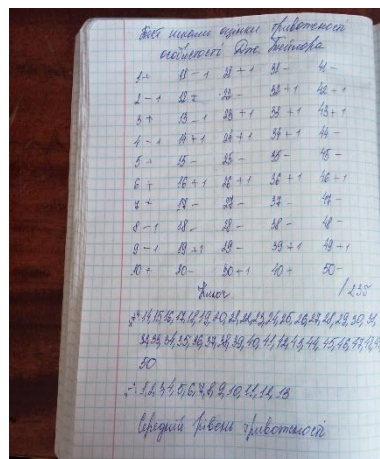 Тест шкали оцінки тривожності
особистості Дж. Тейлора
1+ 11-1 21+1 31- 41-
2-1 12+ 22- 32+1 42+1
3+ 13-1 23+1 33+1 43+1
4-1 14+1 24+1 34+1 44-
5+ 15- 25- 35- 45-
6+ 16+1 26+1 36+1 46+1
7+ 17- 27- 37- 47-
8-1 18- 28- 38- 48-
9-1 19+1 29- 39+1 49+1
10+ 20- 30+1 40+ 50-
Ключ
"+" 14,15,16,17,18,19,20,21,22,23,24,25,26,27,28,29,30,31,
32,33,34,35,36,37,38,39,40,41,42,43,44,45,46,47,48,49
50
"-" 1,2,3,4,5,6,7,8,9,10,11,12,13
Середній рівень тривожності